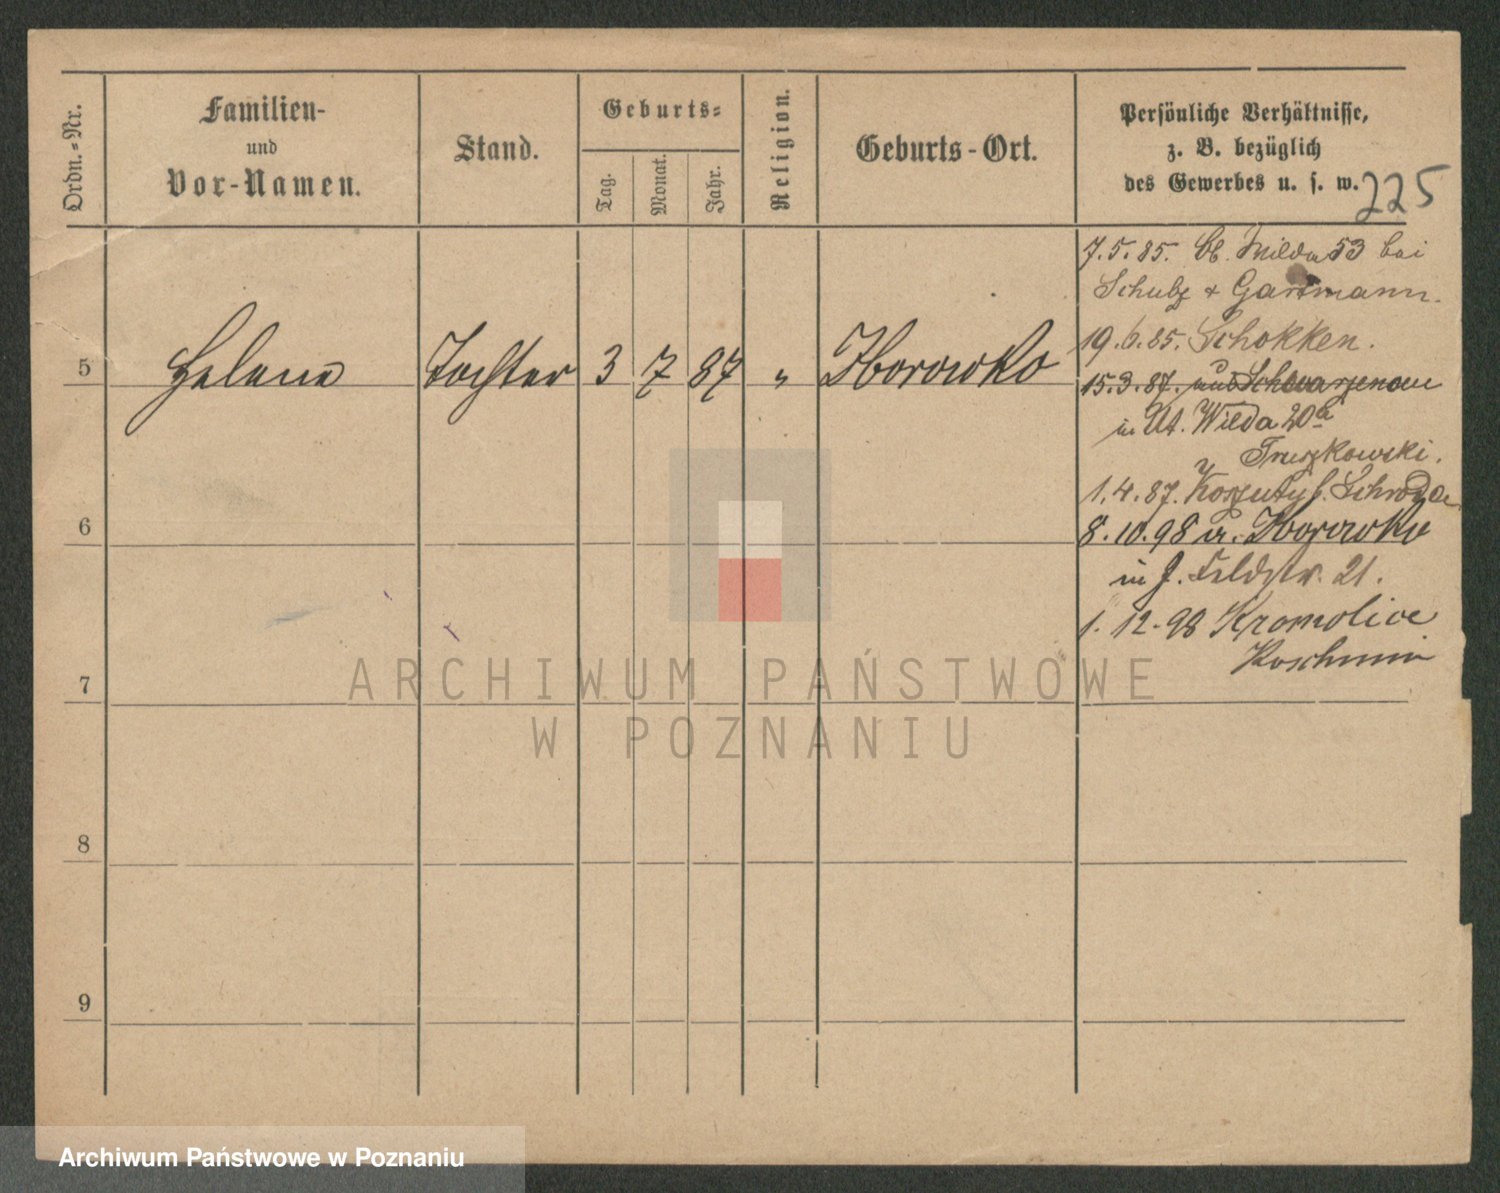 Ordn.-Nr.
Familien-
und
Vor-Namen.
Stand.
Geburts-
Tag.
Monat.
Jahr.
Religion.
Geburts-Ort.
Persönliche Verhältnisse,
z. B. bezüglich
des Gewerbes u. s. w.
225
7.5.85. Wilda 53 bei
Schulz + Gartmann.
19.6.85. Schokken.
5 Helene Tochter 3 7 87 " Zborowko
15.3.87. aus Schwarzenau
in Ut. Wilda 20a
Truszkowski.
1.4.87. Koszuty b. Schroda
6
8.10.98 v. Zborowko
in J. Feldstr. 21.
1.12.98 Kromolice
Koschmin
7
8
9
ARCHIWUM PAŃSTWOWE
W POZNANIU
Archiwum Państwowe w Poznaniu